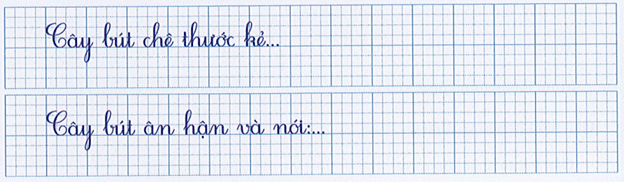 Cây bút chê thước kẻ...
Cây bút ân hận và nói:...